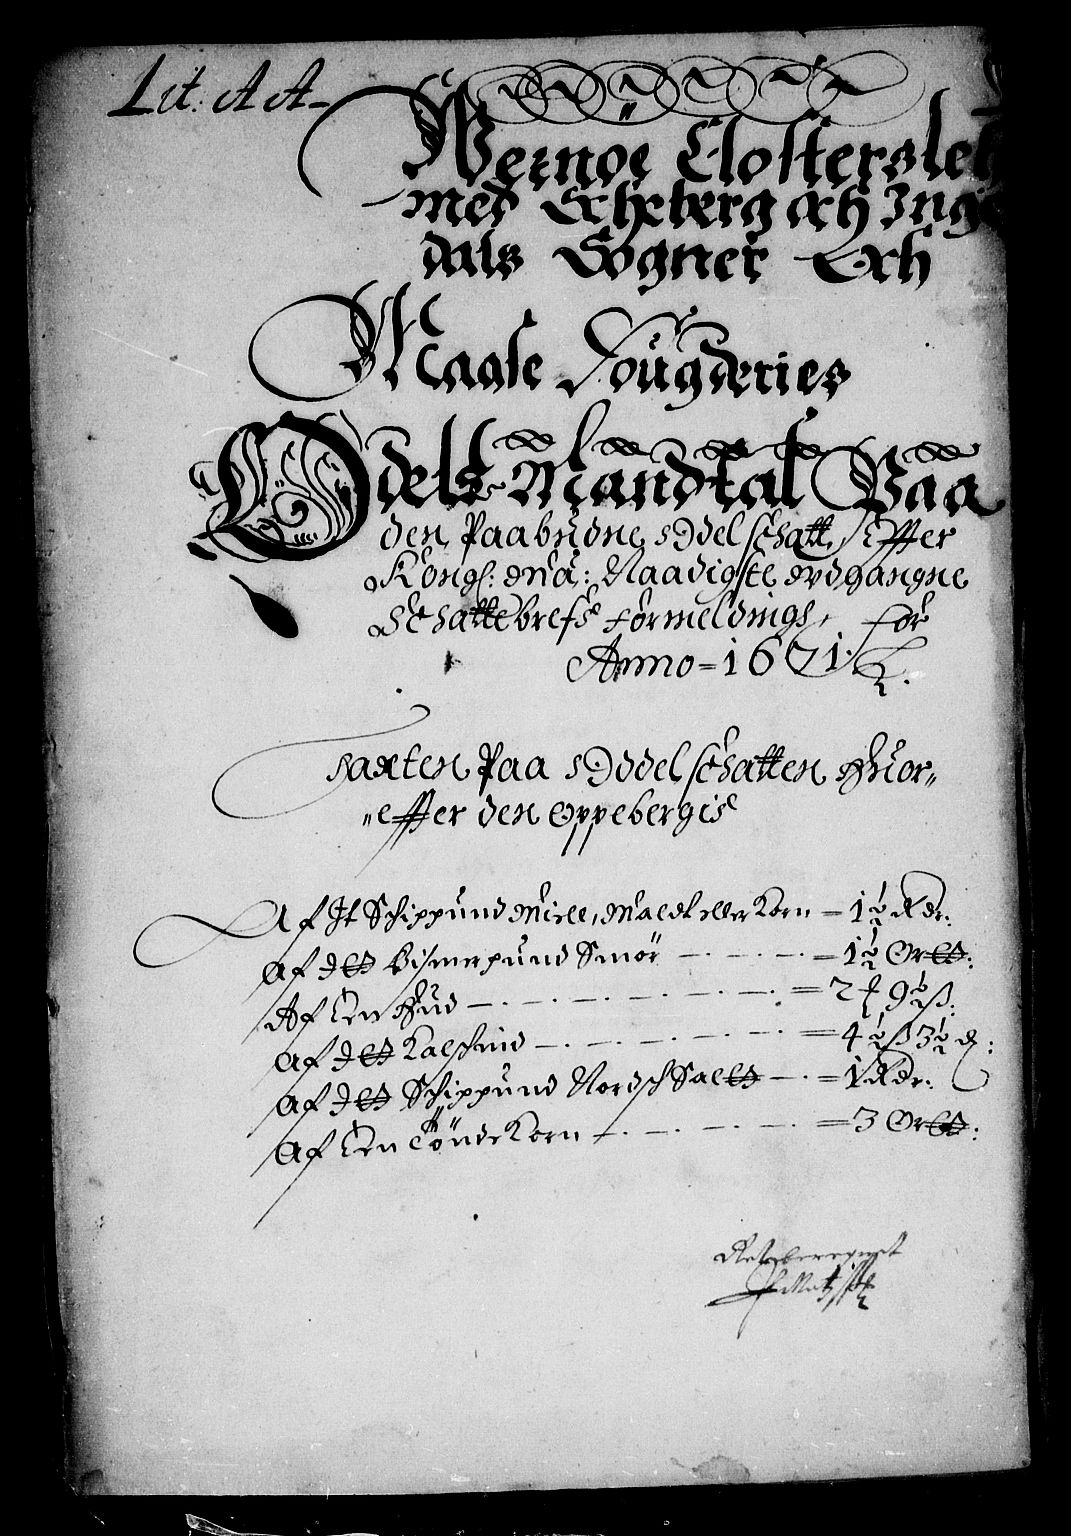 Lit: A A
Wernøe Closters leh
med Echeberg och Inge
dals Sogner Och
Maasse Fougderies
Odels Mandtal Paa
den Paabudne Oddel schatt, Effter
Kongl: Maÿ: Naadigste udgangne
Schattebrefs formeldings, for
Anno = 1671.
Taxten Paa Oddel schatten Huor„
„effter den Oppebergis
Af It Schippund Miell, Malt eller Korn — 1½ Rdr:
Af Itt Bismerpund Smør — 1½ Ortt:
Af Een Hud — 2 9½ ß:
Af Itt Kalfskind — 4½ ß 3½
Af Itt Schippund Nordsch Saltt — 1 Rdr:
Af Een Tønde Korn — 3 Ortt: